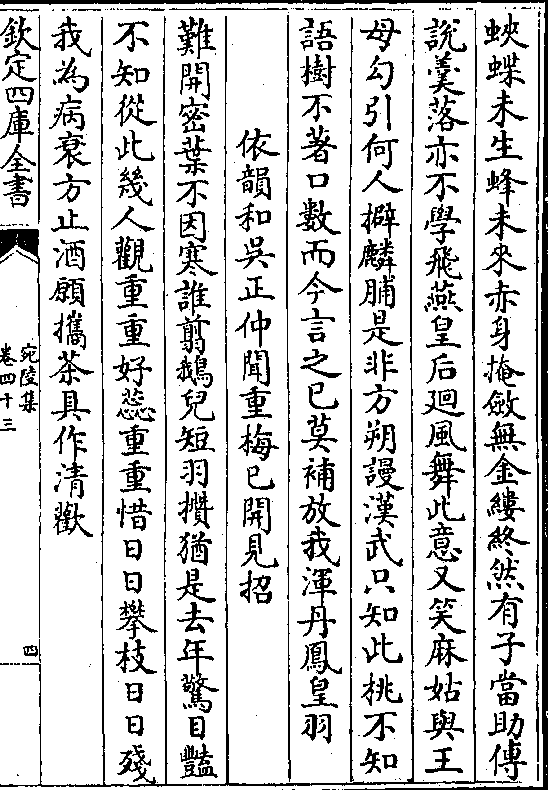 蛺蝶未生蜂未來赤身掩斂無金縷終然有子當助傅
說羮落亦不學飛燕皇后廻風舞此意又笑麻姑與王
母勾引何人擗麟脯是非方朔謾漢武只知此桃不知
語樹不著口數而今言之已莫補放我渾丹鳳皇羽
依韻和吳正仲聞重梅已開見招
難開密葉不因寒誰翦鵝兒短羽攢猶是去年驚目豔
不知從此幾人觀重重好蕊重重惜日日攀枝日日殘
我為病衰方止酒願攜茶具作清歡
欽定四庫全書
宛陵集
卷四十三
四